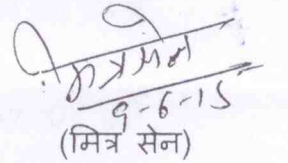 मित्र सेन
9-6-15
(मित्र सेन)